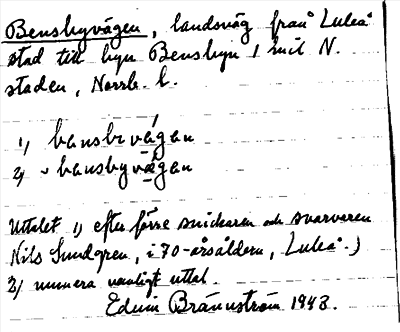 Bensbyvägen, landsväg från Luleå
stad till byn Bensbyn 1 mil N.
staden, Norrb. l.
1) bansbivägan
2) bansbyvägan
Uttalet 1) efter förre snickaren och svarvaren
Nils Sundgren, i 70-årsåldern, Luleå.)
2) numera vanligt uttal.
Edvin Brännström 1943.